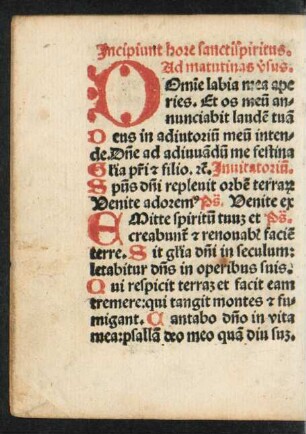 Incipiunt hore sanctisspiritus.
Ad matutinas v̄sus.
Domīe labia mea ape
ries. Et os meū an-
nunciabit laudē tuā
Deus in adiutoriū meū inten-
de. Dñe ad adiuuādū me festina
Gl̄ia pr̄i ⁊ filio. ⁊c̄. Inuitatoriū.
Sp̄us dñi repleuit orbē terraꝝ
Venite adorem⁹ Ps̄. Venite ex
Emitte spiritū tuuꝫ et Ps̄.
creabunt̄ ⁊ renouabꝭ faciē
terre. Sit gl̄ia dñi in seculum:
letabitur dñs in operibus suis.
Qui respicit terraꝫ et facit eam
tremere: qui tangit montes ⁊ fu-
migant. Cantabo dño in vita
mea: psallā deo meo quā diu suꝫ.